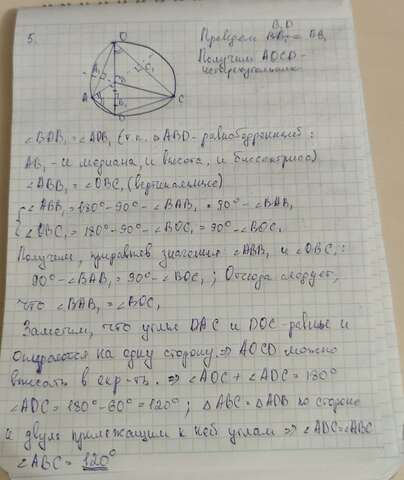 5.
Проведём B₁D = BB₁
Получим AOCD -
четырехугольник
∠BAB₁ = ∠DAB₁ (т.к. △ABD - равнобедренный:
AB₁ - и медиана, и высота, и биссектриса)
∠ABB₁ = ∠OBC₁ (вертикальные)
∠ABB₁ = 180° - 90° - ∠BAB₁ = 90° - ∠BAB₁
∠OBC₁ = 180° - 90° - ∠BOC₁ = 90° - ∠BOC₁
Получим, приравняв значения ∠ABB₁ и ∠OBC₁:
90° - ∠BAB₁ = 90° - ∠BOC₁ ; Отсюда следует,
что ∠BAB₁ = ∠BOC₁
Заметим, что углы DAC и DOC - равные и
опираются на одну сторону. ⇒ AOCD можно
вписать в окр-ть. ⇒ ∠AOC + ∠ADC = 180°
∠ADC = 180° - 60° = 120° ; △ABC = △ADC по стороне
и двум прилежащим к ней углам ⇒ ∠ADC = ∠ABC
∠ABC = 120°